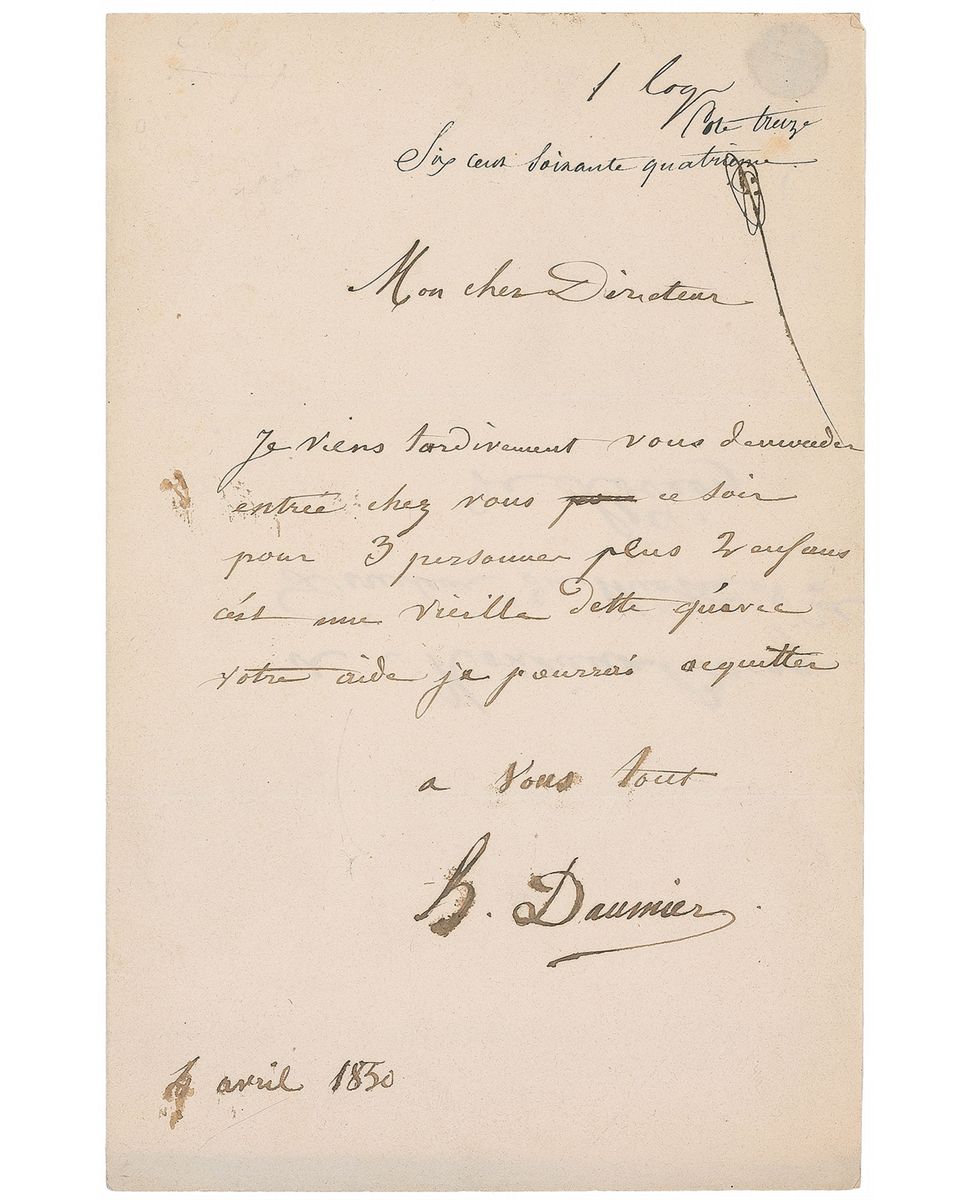 1 loge
Cote treize
Six cent soixante quatrieme
Mon cher Directeur
Je viens tardivement vous demander
entrée chez vous ce soir
pour 3 personnes plus 2 enfans
c'est une vieille dette qu'avec
votre aide je pourrais acquitter
a vous tout
h. Daumier
avril 1850